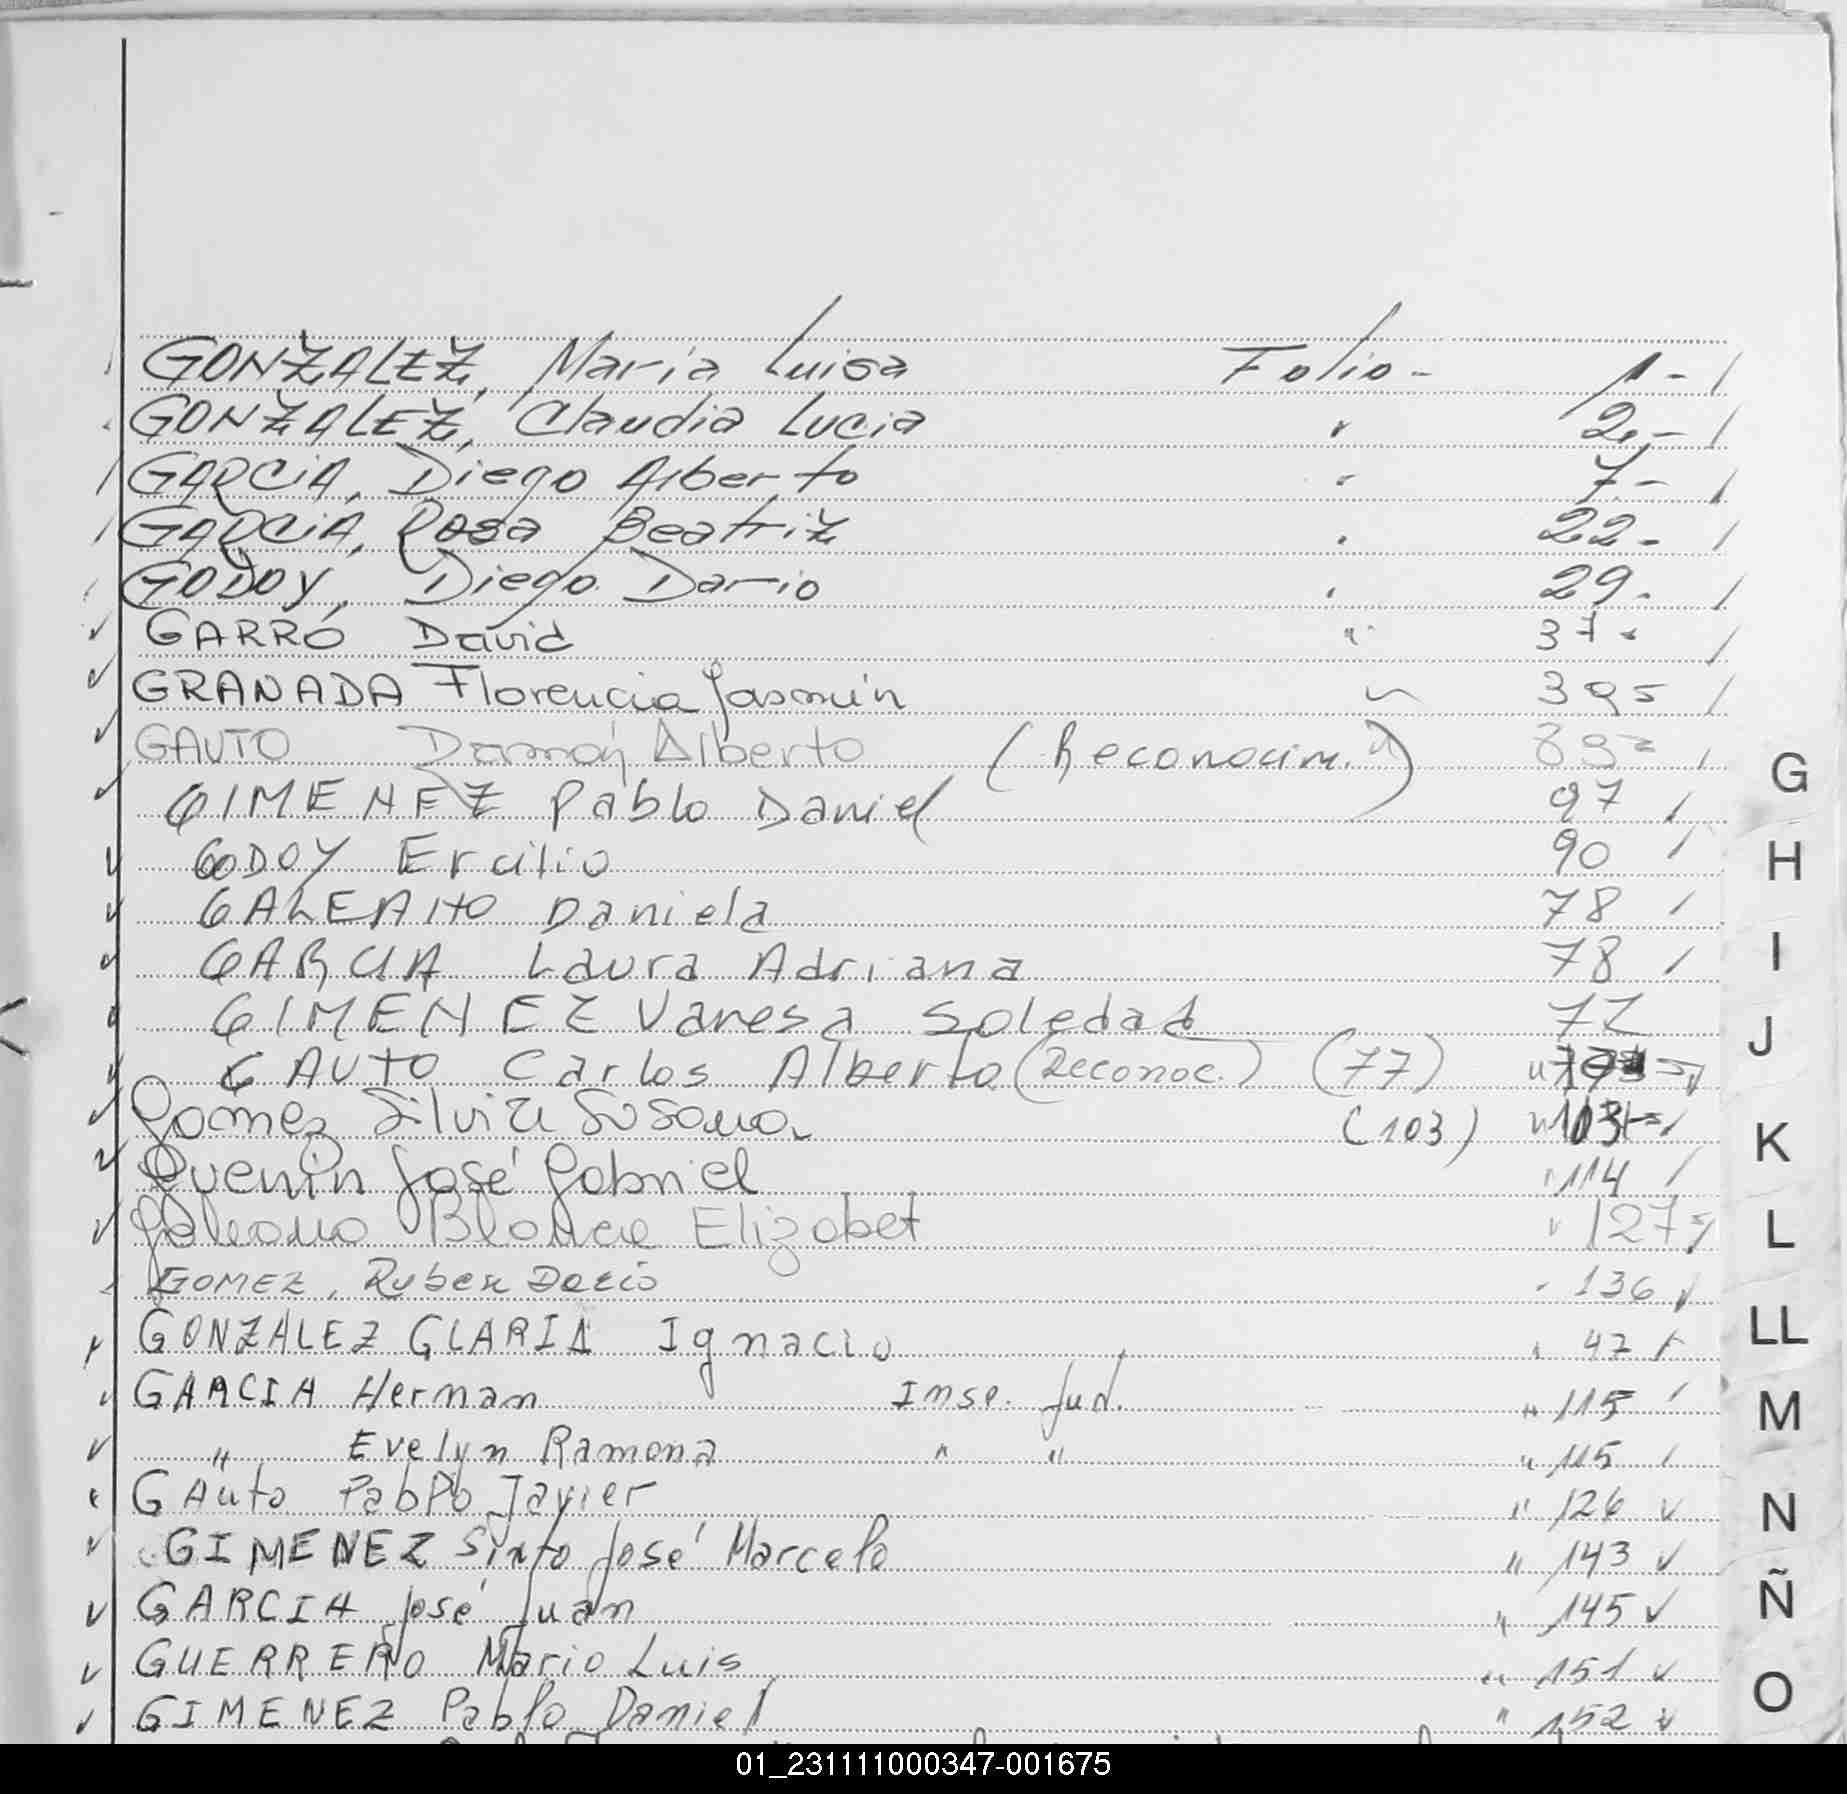 GONZALEZ, Maria Luisa Folio - 1 - /
GONZALEZ, Claudia Lucia " 2. - /
GARCIA, Diego Alberto " 7 - /
GARCIA, Rosa Beatriz " 22 - /
GODOY, Diego Dario " 29 - /
GARRÓ David " 37 - /
GRANADA Florencia Jasmín " 39 /
GAUTO Damián Alberto (Reconocim.) /
GIMENEZ Pablo Daniel 97 /
GODOY Ercilio 90 /
GALEANO Daniela 78 /
GARCIA Laura Adriana 78 /
GIMENEZ Vanesa Soledad 72
GAUTO Carlos Alberto (Reconoc.) (77) "
Gomez Silvia Susana (103) " 103 /
Guenin José Gabriel " 114 /
Galeano Blanca Elizabet " 127
GOMEZ, Ruben Dario " 136
GONZALEZ GLARIA Ignacio " 47
GARCIA Hernan Insc. Jud. " 115 /
" Evelyn Ramona " " " 115 /
GAuto Pablo Javier " 126
GIMENEZ Sixto José Marcelo " 143
GARCIA José Juan " 145
GUERRERO Mario Luis " 151
GIMENEZ Pablo Daniel " 152
G
H
I
J
K
L
LL
M
N
Ñ
O
01_231111000347-001675